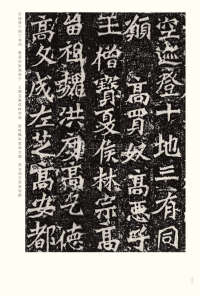 空迹登十地三有同
願高買奴高惡子
王僧寶夏侯林宗高
留祖魏洪度高乞德
高文成左芝高安都